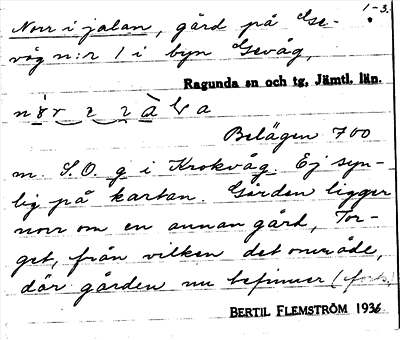 Norr i jalan, gård på Ge- 1-3.
våg n:r 1 i byn Gevåg,
Ragunda sn och tg, Jämtl. län.
Belägen 700
m. S.O. g i Krokvåg. Ej syn-
lig på kartan. Gården ligger
norr om en annan gård, Tor-
get, från vilken det område,
där gården nu befinner (forts.)
BERTIL FLEMSTRÖM 1936